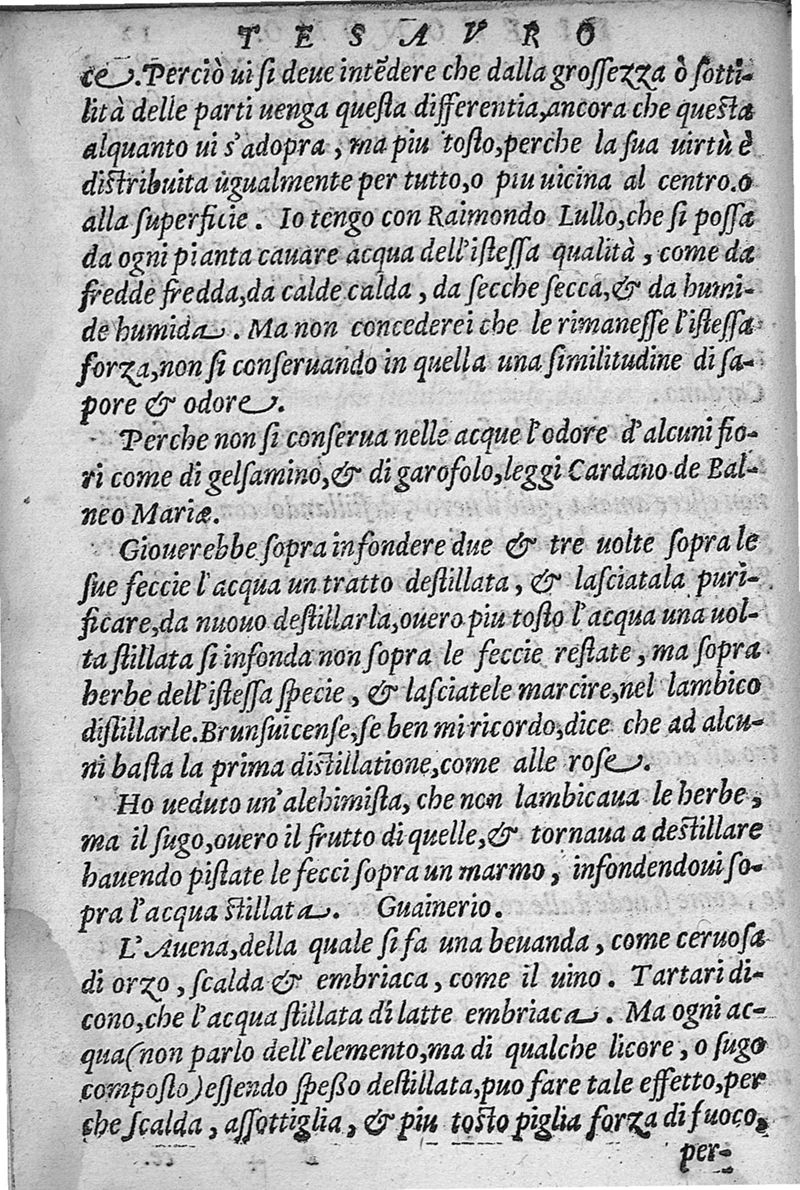 TESAVRO
ce. Perciò ui si deue intēdere che dalla grossezza ò sotti-
lità delle parti uenga questa differentia, ancora che questa
alquanto ui s'adopra, ma piu tosto, perche la sua uirtù è
distribuita ùgualmente per tutto, o piu uicina al centro. o
alla superficie. Io tengo con Raimondo Lullo, che si possa
da ogni pianta cauare acqua dell'istessa qualità, come da
fredde fredda, da calde calda, da secche secca, & da humi-
de humida. Ma non concederei che le rimanesse l'istessa
forza, non si conseruando in quella una similitudine di sa-
pore & odore.
Perche non si conserua nelle acque l'odore d'alcuni fio-
ri come di gelsamino, & di garofolo, leggi Cardano de Bal-
neo Mariæ.
Giouerebbe sopra infondere due & tre uolte sopra le
sue feccie l'acqua un tratto destillata, & lasciatala puri-
ficare, da nuouo destillarla, ouero piu tosto l'acqua una uol-
ta stillata si infonda non sopra le feccie restate, ma sopra
herbe dell'istessa specie, & lasciatele marcire, nel lambico
distillarle. Brunsuicense, se ben mi ricordo, dice che ad alcu-
ni basta la prima distillatione, come alle rose.
Ho ueduto un'alchimista, che non lambicaua le herbe,
ma il sugo, ouero il frutto di quelle, & tornaua a destillare
hauendo pistate le fecci sopra un marmo, infondendoui so-
pra l'acqua stillata. Guainerio.
L'Auena, della quale si fa una beuanda, come ceruosa
di orzo, scalda & embriaca, come il uino. Tartari di-
cono, che l'acqua stillata di latte embriaca. Ma ogni ac-
qua (non parlo dell'elemento, ma di qualche licore, o sugo
composto) essendo spesso destillata, puo fare tale effetto, per
che scalda, assottiglia, & piu tosto piglia forza di fuoco,
per-